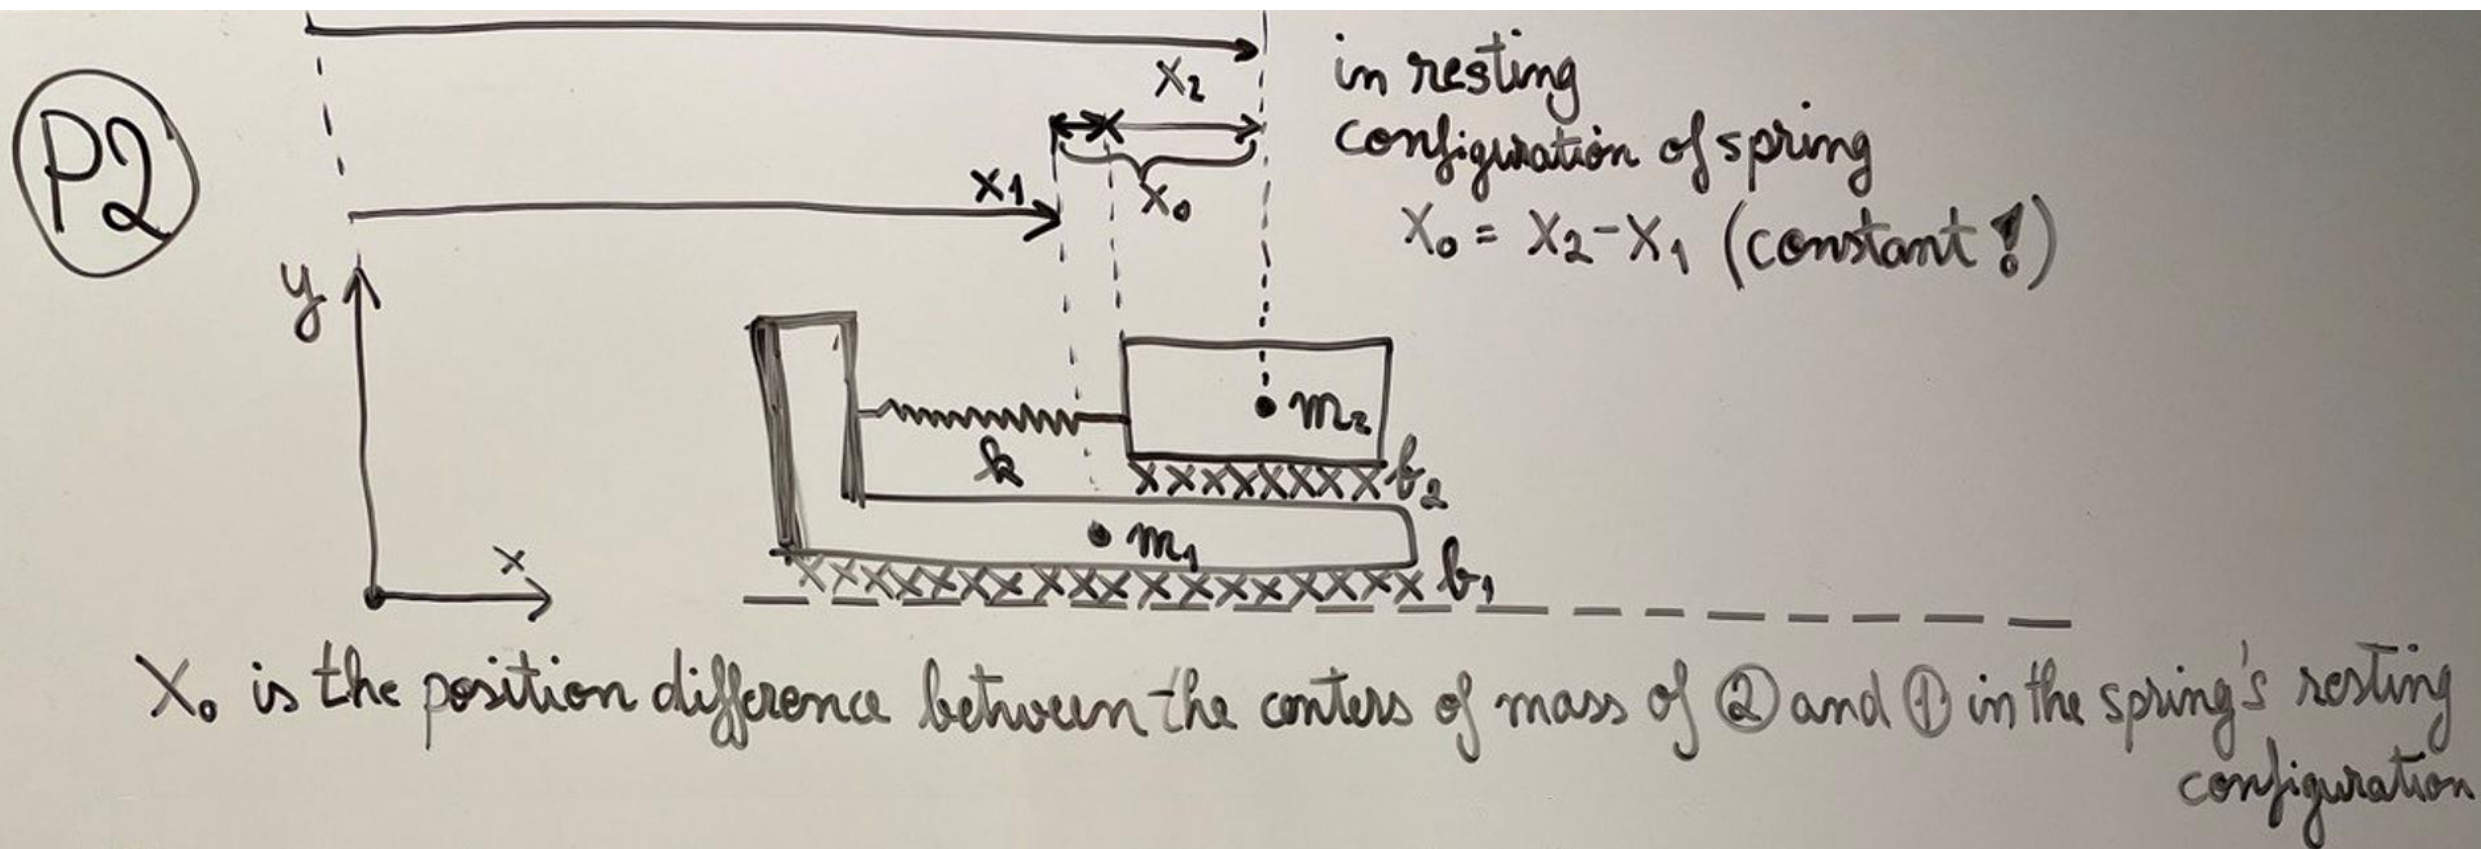 P2
x₂
in resting
configuration of spring
x₀ = x₂-x₁ (constant!)
x₁
x₀
y
m₂
k
b₂
m₁
b₁
x
X₀ is the position difference between the centers of mass of ② and ① in the spring's resting
configuration